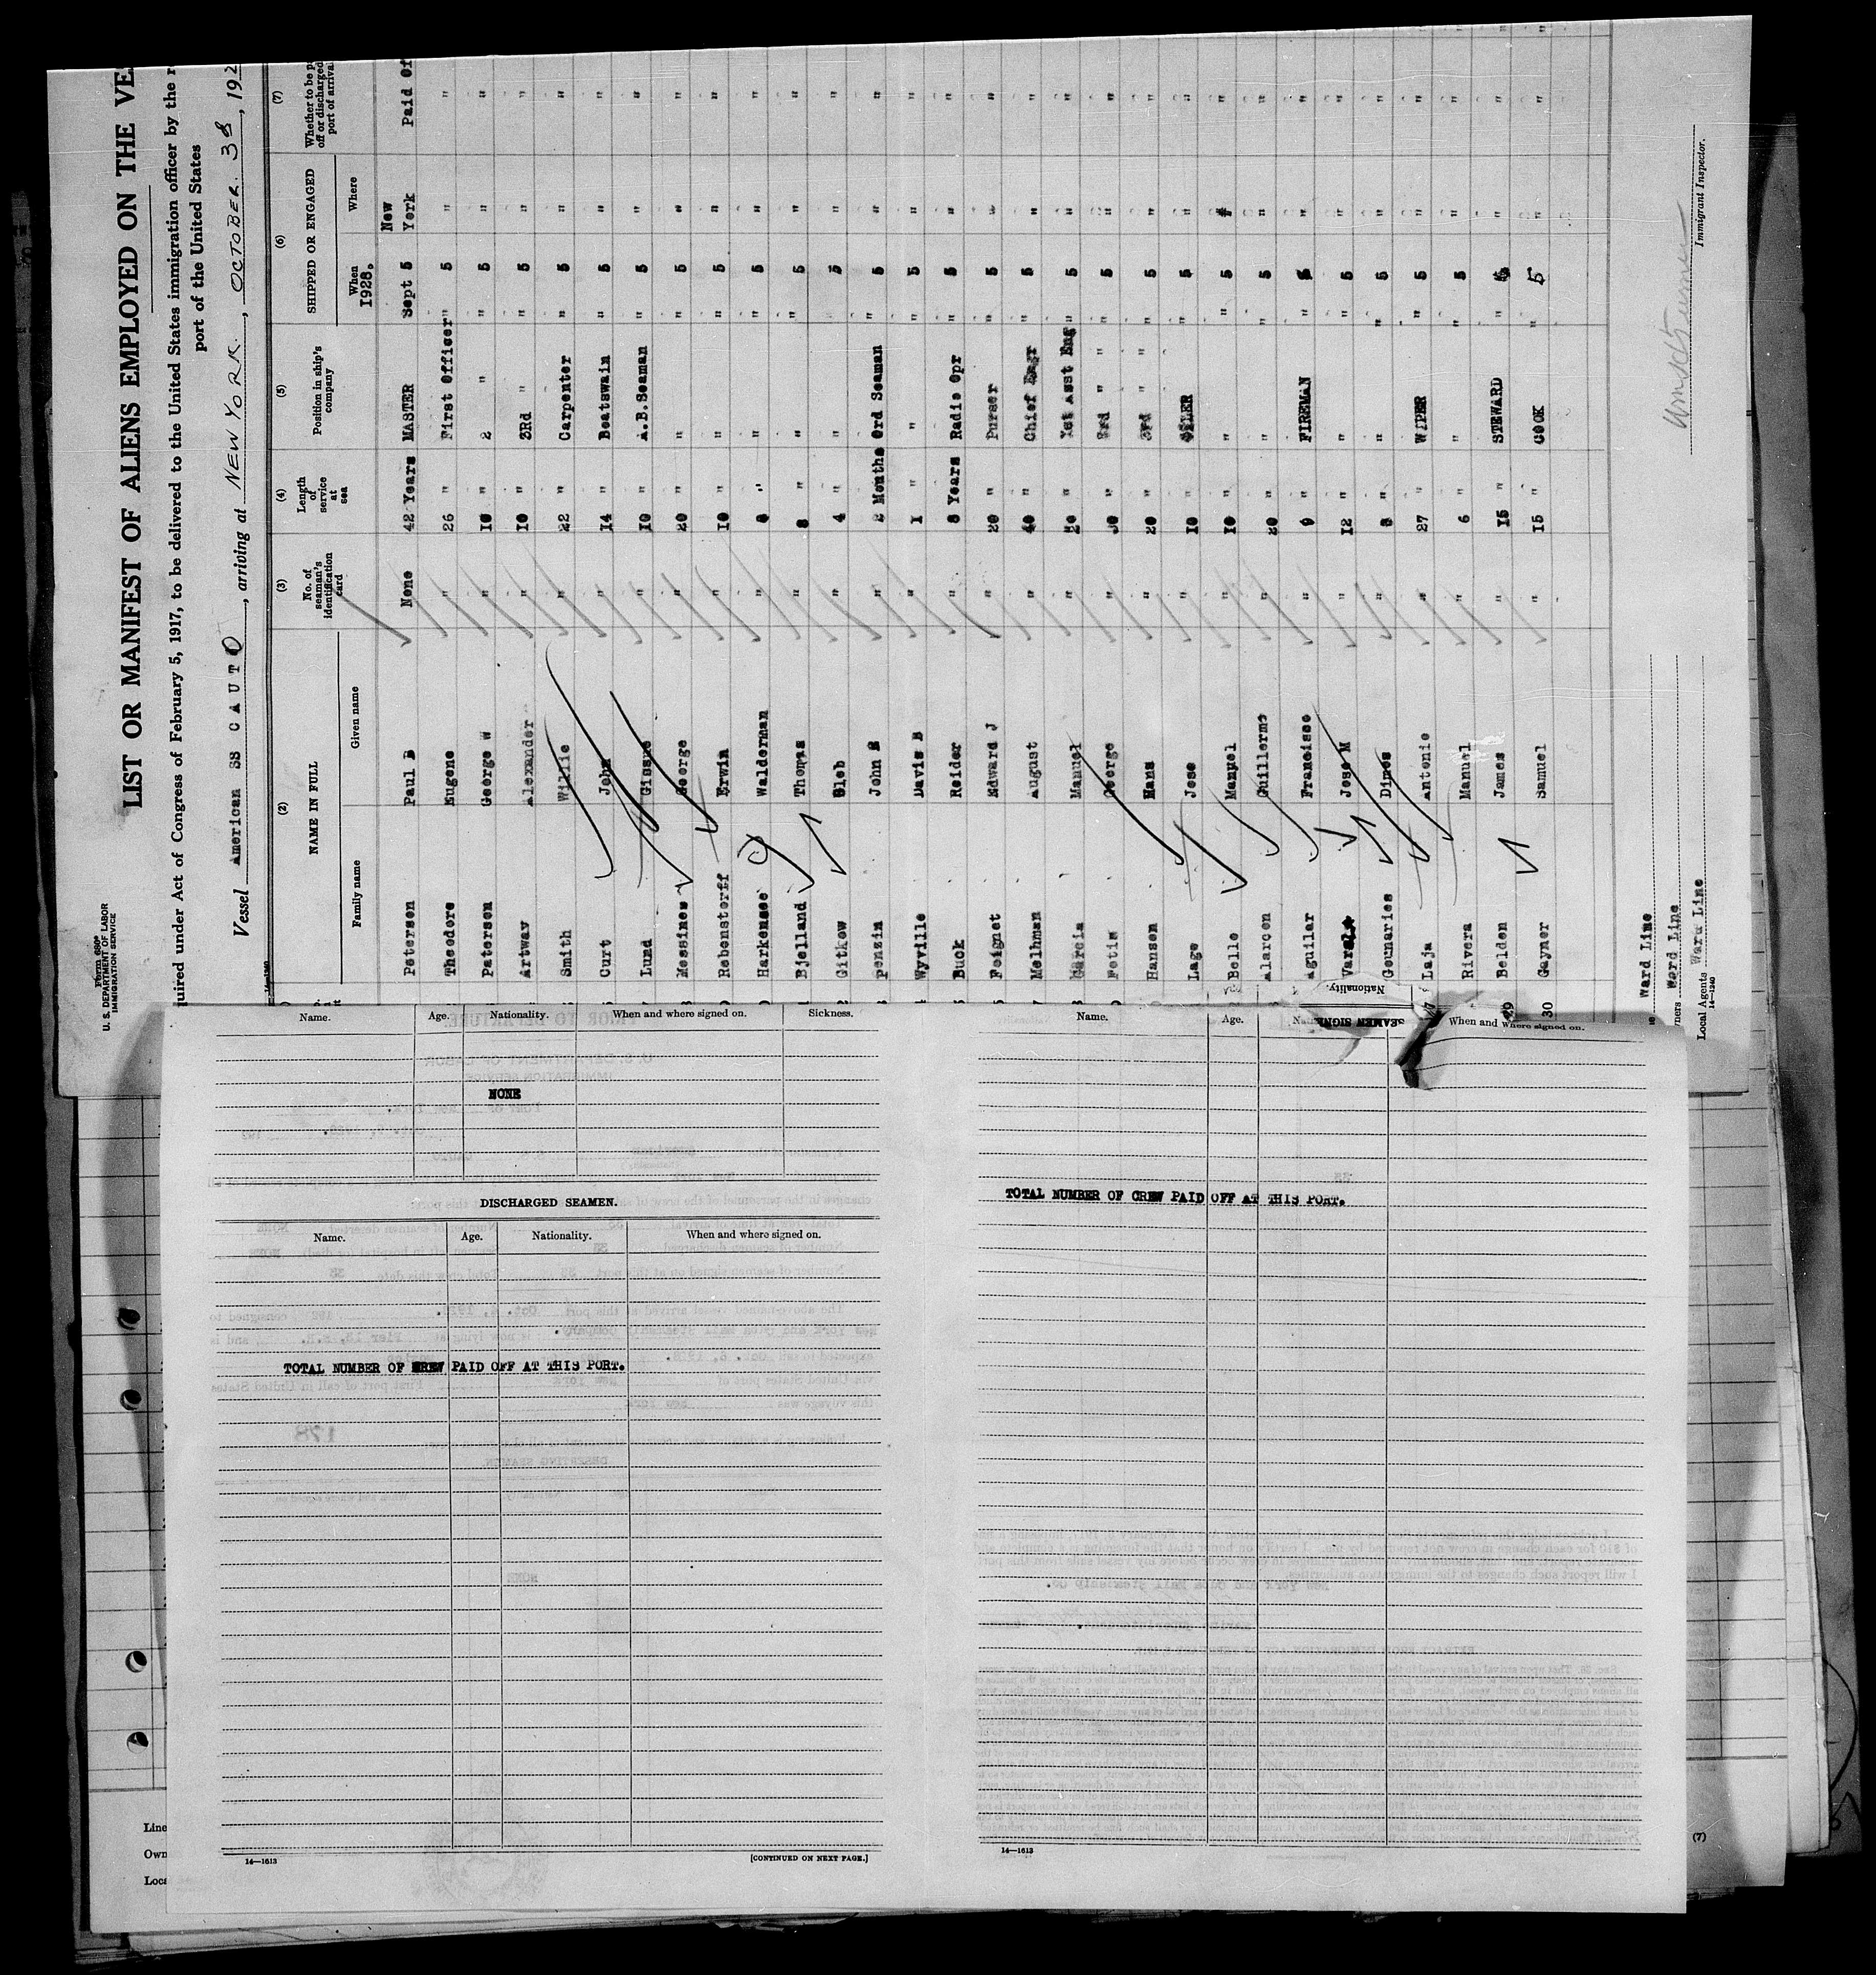 Form 680
U. S. DEPARTMENT OF LABOR
IMMIGRATION SERVICE
LIST OR MANIFEST OF ALIENS EMPLOYED ON THE VE
quired under Act of Congress of February 5, 1917, to be delivered to the United States immigration officer by the r
port of the United States
Vessel American SS CAUTO, arriving at NEW YORK., OCTOBER. 3d, 192
(2) (3) (4) (5) (6) (7)
NAME IN FULL
Family name Given name
No. of seaman's identification card
Length of service at sea
Position in ship's company
SHIPPED OR ENGAGED
When Where
1928.
Whether to be p
off or discharged
port of arrival
Petersen Paul B None 42 Years MASTER Sept 5 New York Paid Of
Theodore Eugene " 26 " First Officer " 5 " "
Patersen George W " 10 " 2 " " 5 " "
Artway Alexander " 10 " 3Rd " " 5 " "
Smith Willie " 22 " Carpenter " 5 " "
Curt John " 14 " Boatswain " 5 " "
Lund " 10 " A.B.Seaman " 5 " "
Messines George " 20 " " " 5 " "
Rebenstorff Erwin " 10 " " " 5 " "
Harkensee Walderman " 8 " " " 5 " "
Bjelland Thomas " 8 " " " 5 " "
Gitkow Gleb " 4 " " 5 " "
Penzin John E " 2 Months Ord Seaman " 5 " "
Wyville Davis B " 1 " " " 5 " "
Buck Reider " 8 Years Radio Opr " 5 " "
Feignet Edward J " 20 " Purser " 5 " "
Melhman August " 40 " Chief Engr " 5 " "
Garcia Manuel " 20 " 1st Asst Eng " 5 " "
Fetis George " 30 " " " " 5 " "
Hansen Hans " 20 " 3rd " " 5 " "
Lage Jose " 10 " OILER " 5 " "
Belle Manuel " 10 " " " 5 " "
Alarcen Guillermo " 20 " " " 5 " "
Aguilar Francisco " 9 " FIREMAN " 5 " "
Jose M " 12 " " " 5 " "
Gounaries Dimos " 8 " " " 5 " "
Laja Antonio " 27 " WIPER " 5 " "
Rivera Manuel " 6 " " " 5 " "
29 Belden James " 15 " STEWARD " 5 " "
30 Gayner Samuel " 15 " COOK " 5 " "
Ward Line
Owners Ward Line
Local Agents Ward Line
14—1240
Immigrant Inspector.
Name. Age. Nationality. When and where signed on. Sickness.
NONE
DISCHARGED SEAMEN.
Name. Age. Nationality. When and where signed on.
TOTAL NUMBER OF CREW PAID OFF AT THIS PORT.
14—1613
[CONTINUED ON NEXT PAGE.]
SEAMEN SIGNE
Nationality.
Name. Age. When and where signed on.
TOTAL NUMBER OF CREW PAID OFF AT THIS PORT.
14—1613
Line
Own
Loca
(7)